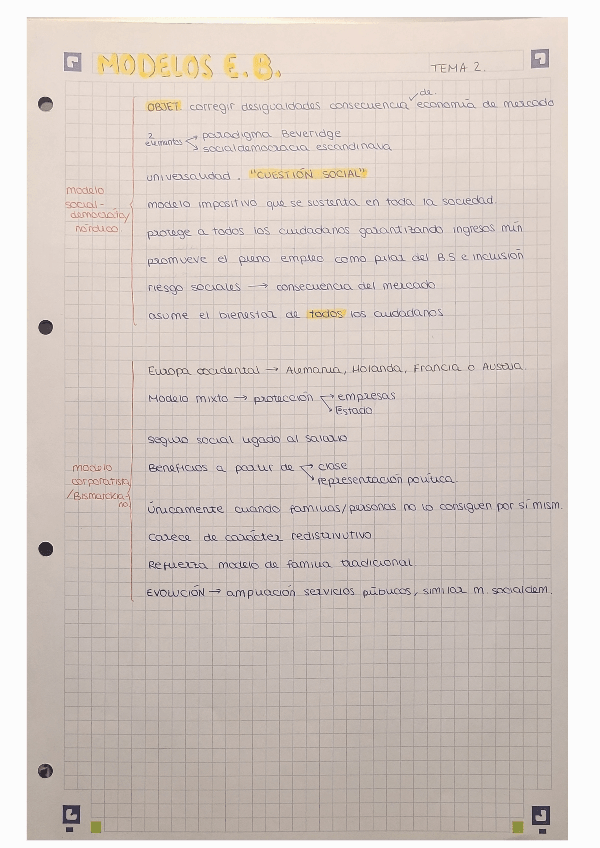 MODELOS E.B.
TEMA 2.
OBJET corregir desigualdades consecuencia de economía de mercado
2 elementos → paradigma Beveridge
→ socialdemocracia escandinava
universalidad. "CUESTIÓN SOCIAL"
modelo social-democráta/nórdico
modelo impositivo que se sustenta en toda la sociedad
protege a todos los ciudadanos garantizando ingresos mín
promueve el pleno empleo como pilar del B.S e inclusión
riesgo sociales → consecuencia del mercado
asume el bienestar de todos los ciudadanos
Europa occidental → Alemania, Holanda, Francia o Austria.
Modelo mixto → protección → empresas
→ Estado
seguro social ligado al salario
modelo corporatista/Bismarckiano
Beneficios a partir de → clase
→ representación política.
Únicamente cuando familias/personas no lo consiguen por sí mism.
Carece de carácter redistributivo
Refuerza modelo de familia tradicional
EVOLUCIÓN → ampliación servicios públicos, similar m. socialdem.